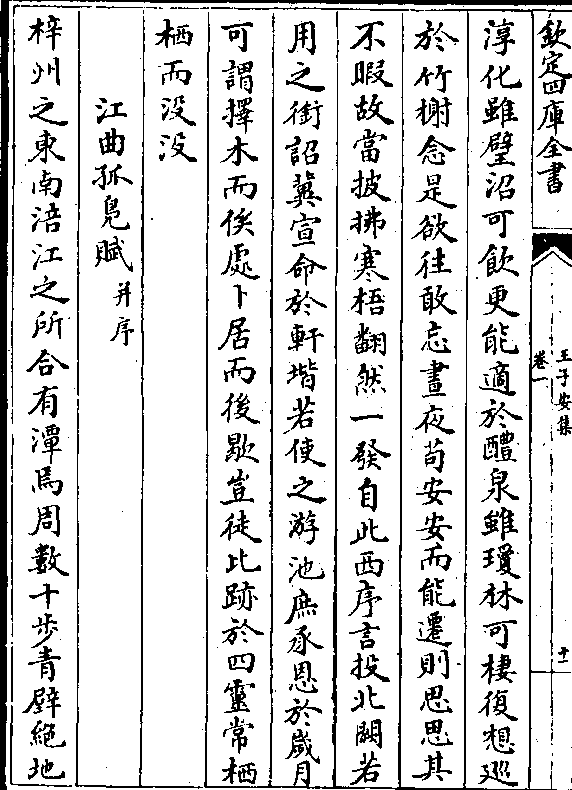 欽定四庫全書
王子安集
卷一
十一
淳化雖璧沼可飲更能適於醴泉雖瓊林可棲復想廵
於竹榭念是欲往敢忘晝夜苟安安而能遷則思思其
不暇故當披拂寒梧翻然一發自此西序言投北闕若
用之銜詔冀宣命於軒堦若使之游池庶承恩於歲月
可謂擇木而俟處卜居而後歇豈徒比跡於四靈常栖
栖而没没
江曲孤鳬賦并序
梓州之東南涪江之所合有潭焉周數十步青壁絶地